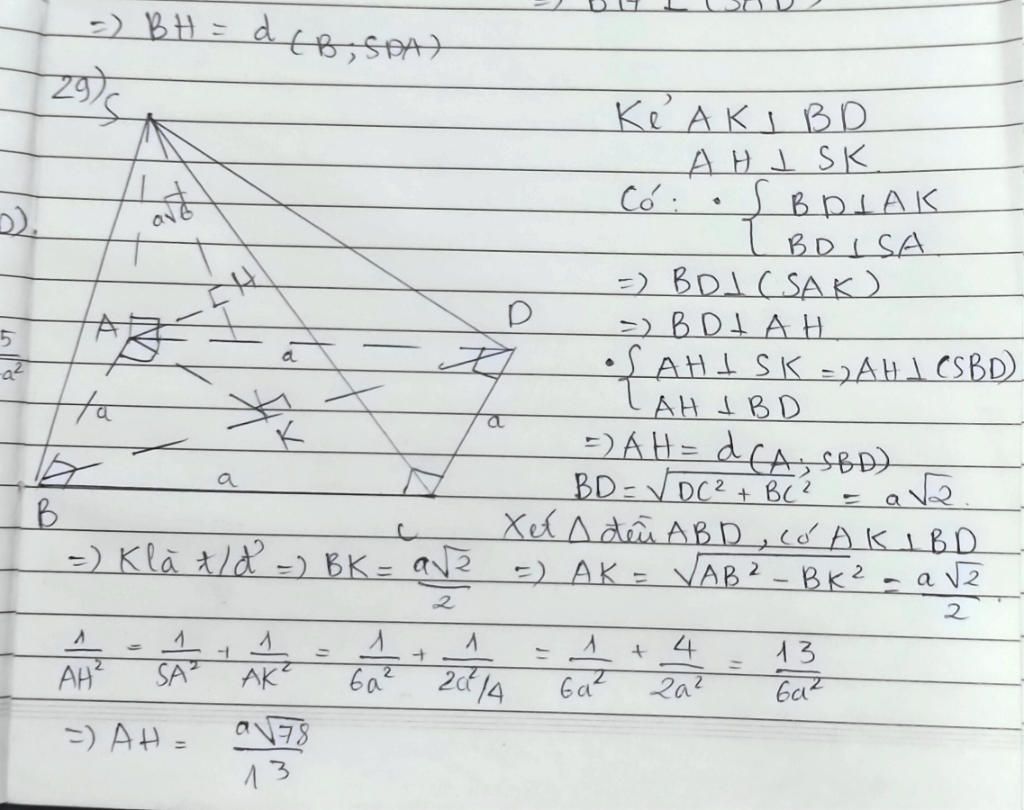 => BH ⊥ (SAD)
=> BH = d(B;SDA)
29)
S
a√6
H
A
D
a
/a
K
a
a
B
C
D).
5/a²
Kẻ AK ⊥ BD
AH ⊥ SK
Có: • { BD ⊥ AK
BD ⊥ SA
=> BD ⊥ (SAK)
=> BD ⊥ AH
• { AH ⊥ SK => AH ⊥ (SBD)
AH ⊥ BD
=> AH = d(A; SBD)
BD = √(DC² + BC²) = a√2.
Xét Δ đều ABD, có AK ⊥ BD
=> K là t/đ => BK = a√2/2 => AK = √(AB² - BK²) = a√2/2.
1/AH² = 1/SA² + 1/AK² = 1/6a² + 1/(2a²/4) = 1/6a² + 4/2a² = 13/6a²
=> AH = a√78/13